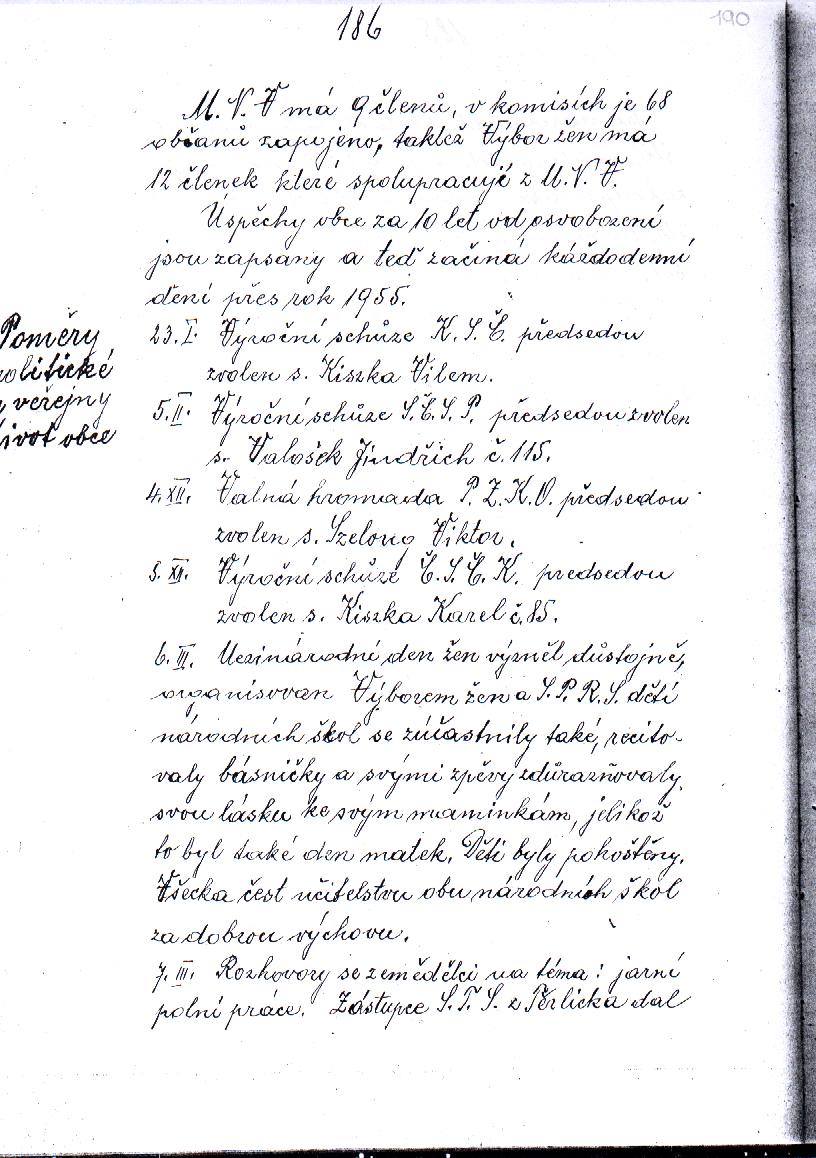 186
190
M. N. V má 9 členů, v komisích je 68
občanů zapojeno, taktéž Výbor žen má
12 členek které spolupracují z M. N. V.
Úspěchy obce za 10 let od osvobození
jsou zapsany a teď začíná káždodenní
dění přes rok 1955.
Poměry
politické
a veřejny
život obce
23. I. Výroční schůze K. S. Č. předsedou
zvolen s. Kiszka Vilem.
5. II. Výroční schůze S. Č. S. P. předsedou zvolen
s. Valošek Jindřich č. 115.
4. XII. Valná hromada P. Z. K. O. předsedou
zvolen s. Szelong Viktor.
5. XII. Výroční schůze Č. S. Č. K. predsedou
zvolen s. Kiszka Karel č. 85.
6. III. Mezinárodní den žen vyzněl důstojně,
organisovan Výborem žen a S. P. R. S. děti
národních škol se zúčastnily také, recito-
valy básničky a svými zpěvy zdůrazňovaly
svou lásku ke svým maminkám, jelikož
to byl také den matek. Děti byly pohoštěny.
Všecka čest učitelstvu obu národních škol
za dobrou výchovu.
7. III. Rozhovory se zemědělci na téma: jarní
polní práce. Zástupce S. T. S. z Těrlicka dal